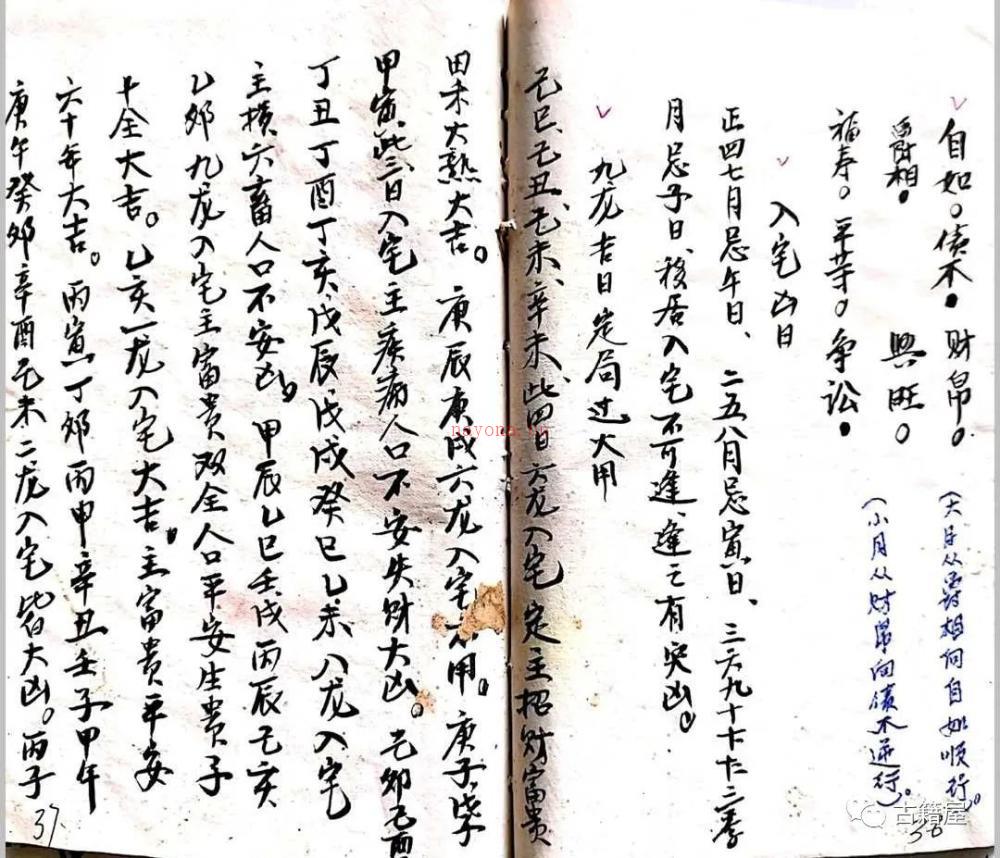 自如。债木●财帛。
爵相●　興旺。
福寿。平等。争讼●
(大月从爵相向自如顺行)。
(小月从财帛向债木逆行)。
入宅凶日
正四七月忌午日、二五八月忌寅日、三六九十十十二季
月忌子日、移居入宅不可逢、逢之有灾凶。
九龙吉日定局过大用
己巳、己丑、己未、辛未、此四日六龙入宅定主招财富贵
田禾大熟大吉。庚辰庚戌六龙入宅不用。庚子、戊子
甲寅、此三日入宅主疾病人口不安失财大凶。己卯己酉
丁丑丁酉丁亥、戊辰、戊戌癸巳乙未八龙入宅
主横六畜人口不安凶。甲辰乙巳壬戌丙辰乙亥
乙卯九龙入宅主富贵双全人口平安生贵子
十全大吉。乙亥一龙入宅大吉。主富贵平安
六十年大吉。丙寅丁卯丙申辛丑壬子甲午
庚午癸卯辛酉己未二龙入宅皆大凶。丙子
37
38
nayona.cn
古籍屋